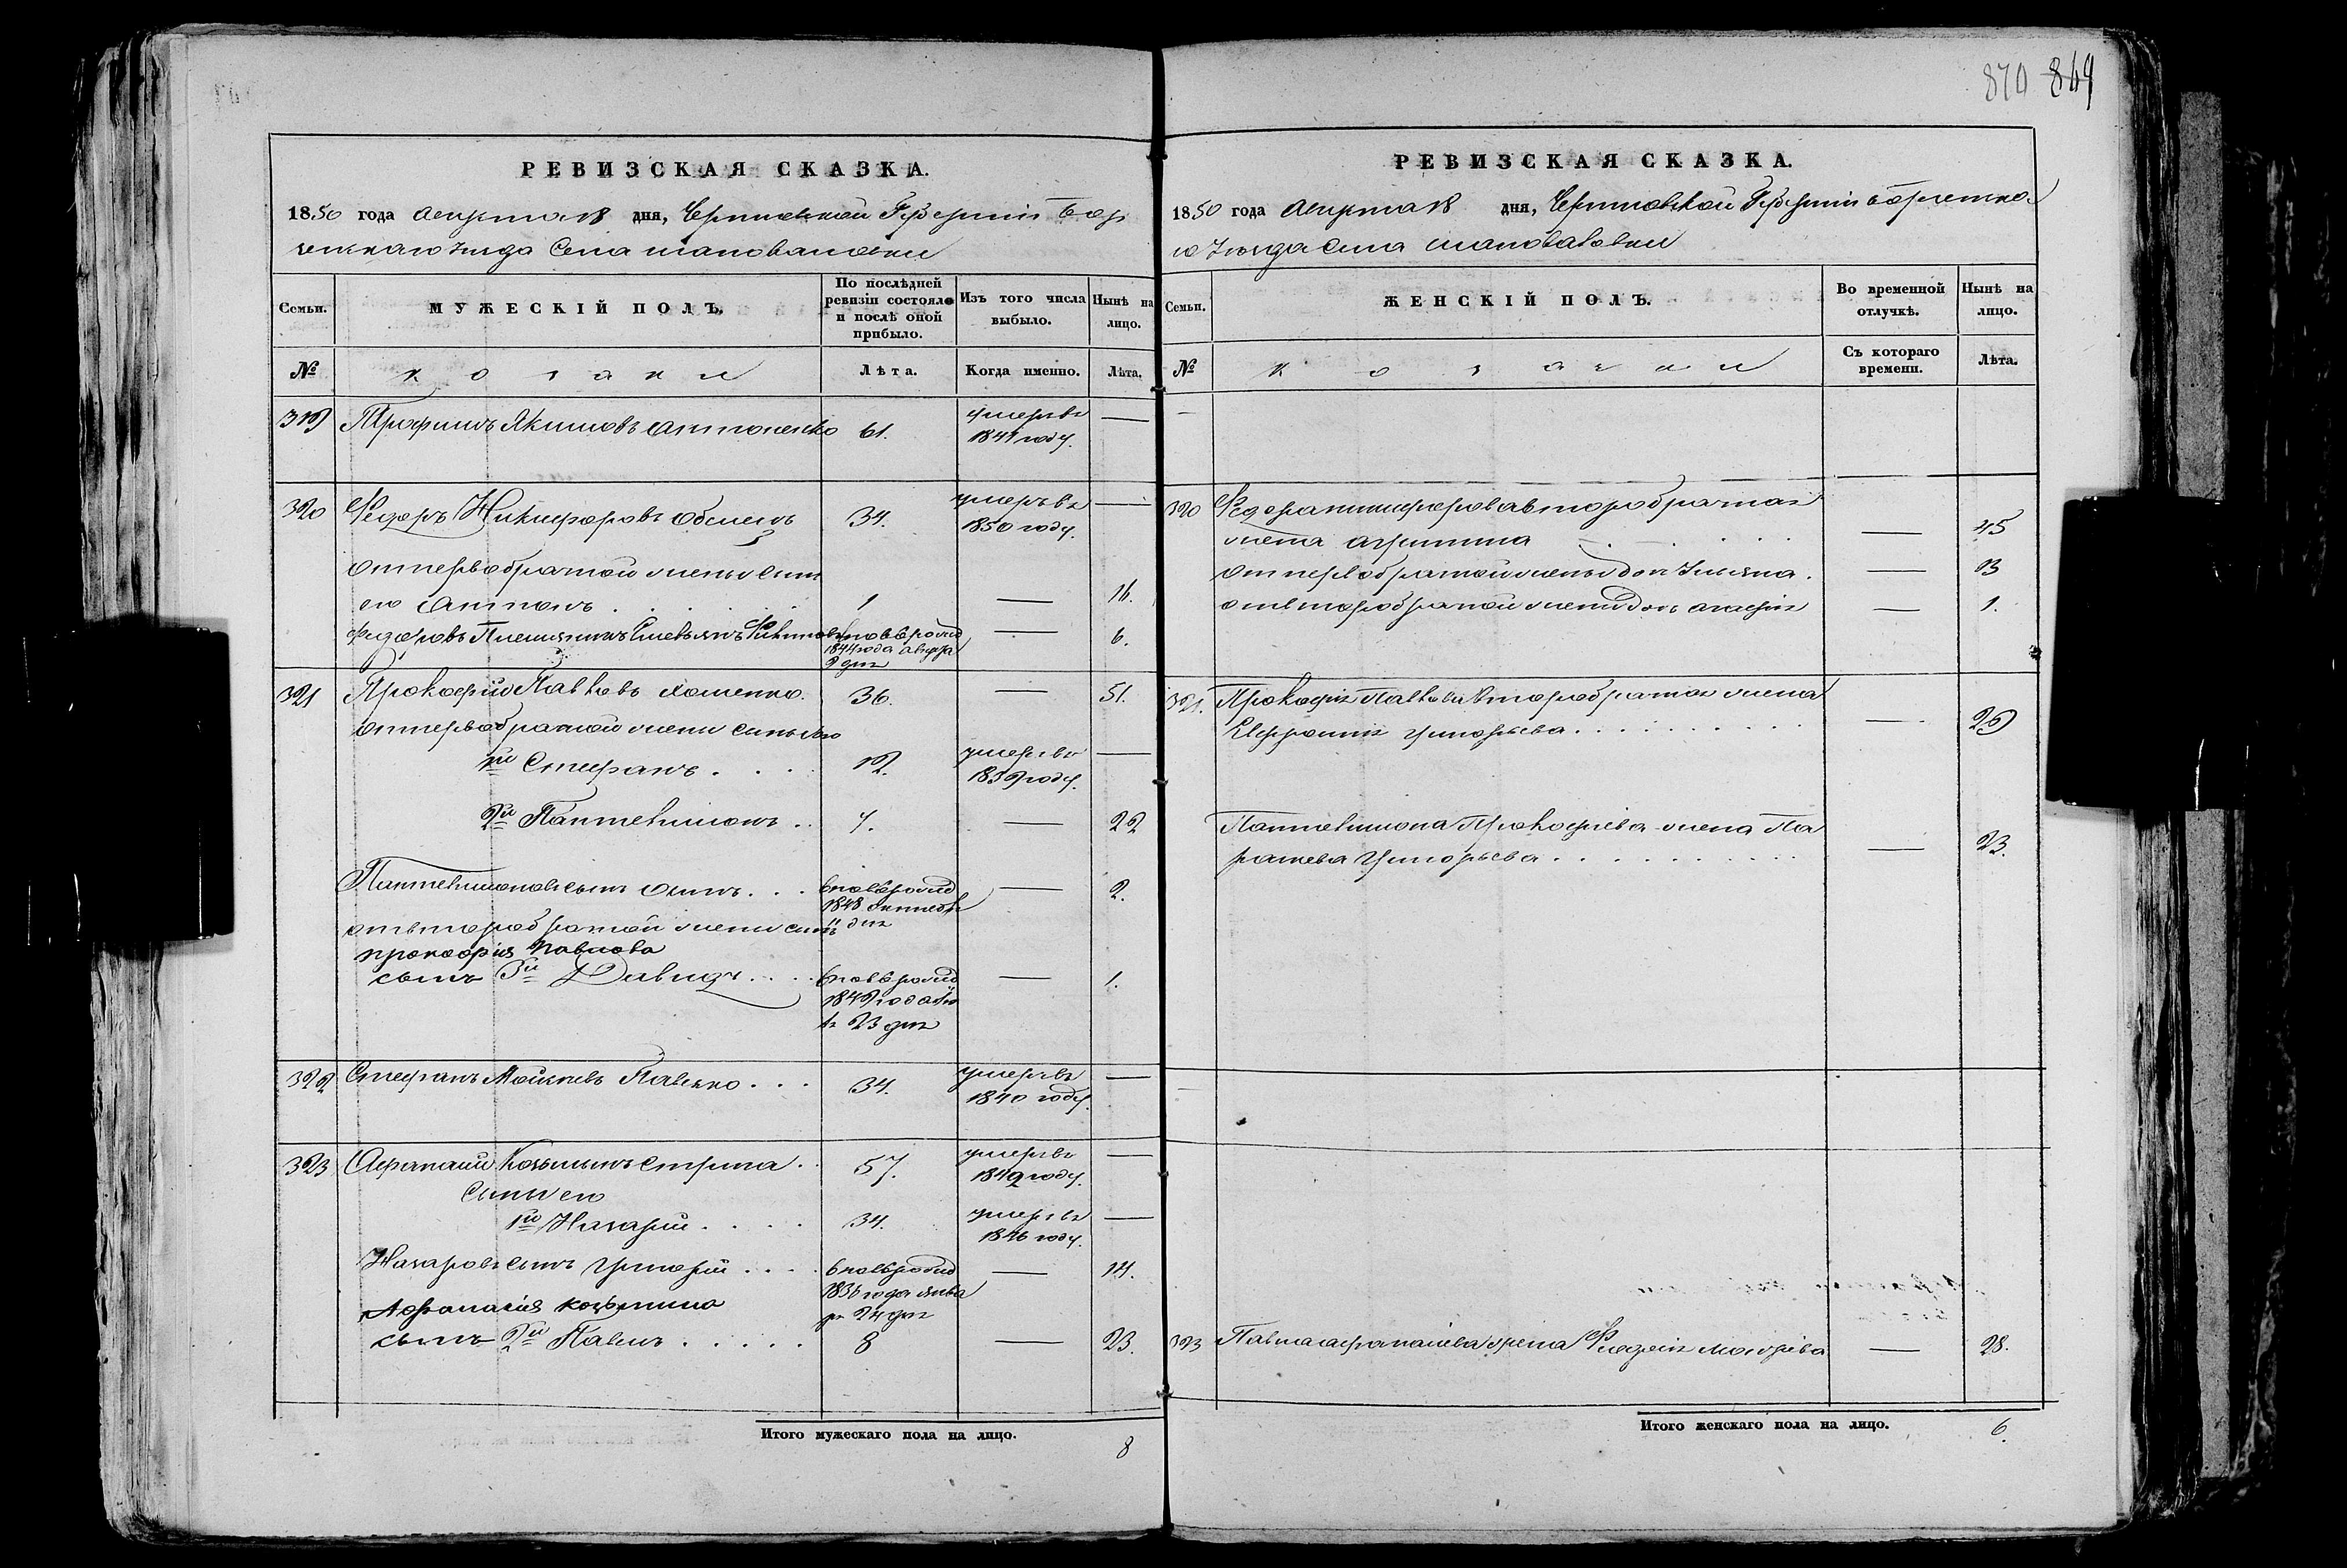 870 869
РЕВИЗСКАЯ СКАЗКА.
1850 года Августа 18 дня, Черниговской Губерніи Бор
зенскаго уезда Села Шаповаловки
Семьи. МУЖЕСКІЙ ПОЛЪ. По послѣдней ревизіи состояло и послѣ оной прибыло. Изъ того числа выбыло. Нынѣ на лицо.
№ козаки Лѣта. Когда именно. Лѣта.
319 Трофимъ Якимовъ Антоненко 61. умеръ въ —
1841 году.
320 Федоръ Никифоровъ 34. умеръ въ —
1850 году.
от первобрачной жены сын
его Антонъ 1 — 16.
Федоровъ Племянникъ вновь рожд — 6.
1844 года августа
2 дня
321 Прокофій Павловъ 36. — 51.
от первобрачной жены сыновья
1й Стефанъ 12. умеръ въ —
году.
2й Пантелимонъ 7. — 22
Пантелимоновъ сынъ вновь рожд — 2.
1848 октября
дня
от второбрачной жены сынъ
Прокофія Павлова
сынъ 3й Давидъ вновь рожд — 1.
1849 года
23 дня
322 Стефанъ Моисеевъ Павленко 34. умеръ въ —
1840 году.
323 Афанасій Козьминъ Стрила 57. умеръ въ —
1842 году.
Сыны его
1й Назарій 34. умеръ въ —
1846 году.
Назаровъ сынъ Григорій вновь рожд — 14.
1836 года янва
ря 24 дня
Афанасія Козьмина
сынъ 2й Павелъ 8 — 23.
Итого мужескаго пола на лицо. 8
РЕВИЗСКАЯ СКАЗКА.
1850 года Августа 18 дня, Черниговской Губерніи Борзенска
го уезда Села Шаповаловки
Семьи. ЖЕНСКІЙ ПОЛЪ. Во временной отлучкѣ. Нынѣ на лицо.
№ козаки Съ котораго времени. Лѣта.
320 Федора Никифорова второбрачная
жена Агрипина — 45
от первобрачной жены дочь Ульяна — 13
от второбрачной жены дочь — 1.
321. Прокофія Павлова второбрачная жена
Евфросинія Григорьева — 29
Пантелимона Прокофіева жена Па
раскева Григорьева — 23.
323 Павла Афанасіева жена — 28.
Итого женскаго пола на лицо. 6.